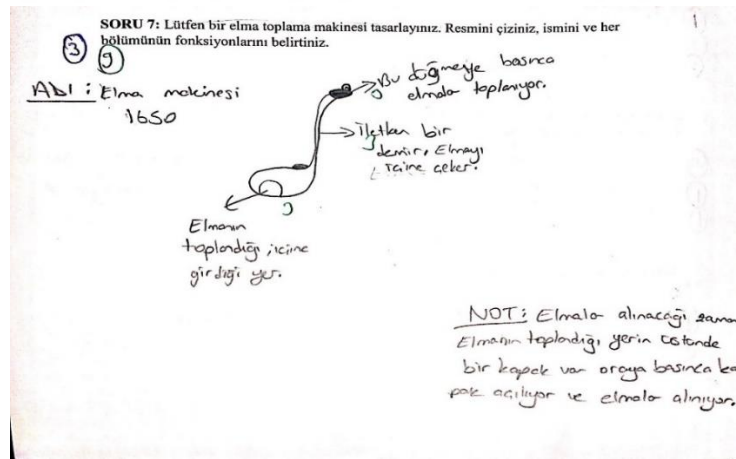 SORU 7: Lütfen bir elma toplama makinesi tasarlayınız. Resmini çiziniz, ismini ve her
bölümünün fonksiyonlarını belirtiniz.
3
9
1
ADI : Elma makinesi
1650
Bu düğmeye basınca
elmalar toplanıyor.
İletken bir
demir. Elmayı
içine çeker.
Elmanın
toplandığı, içine
girdiği yer.
NOT: Elmalar alınacağı zaman
Elmanın toplandığı yerin üstünde
bir kapak var oraya basınca ka
pak açılıyor ve elmalar alınıyor.